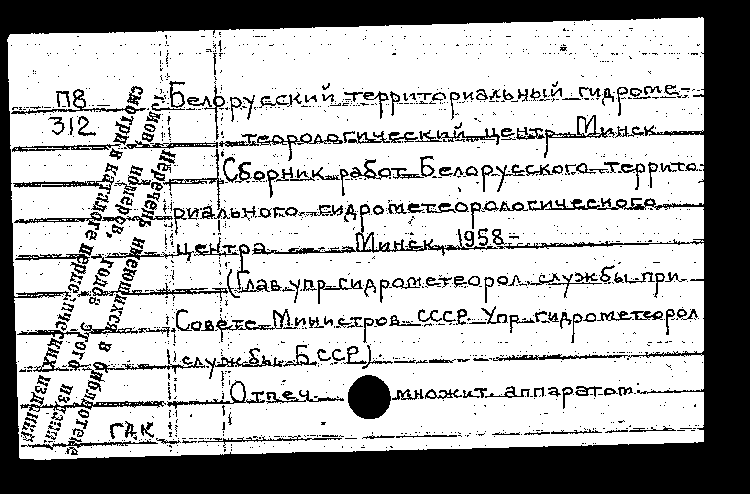 П8
312
Белорусский территориальный гидроме-
теорологический центр Минск
Сборник работ Белорусского террито-
риального гидрометеорологического
центра — Минск, 1958-
(Глав. упр. гидрометеорол. службы при
Совете Министров СССР. Упр. гидрометеорол
службы БССР).
Отпеч. множит. аппаратом.
ГАК
Перечень имеющихся в библиотеке
томов, номеров, годов этого издания
смотри в каталоге периодических изданий